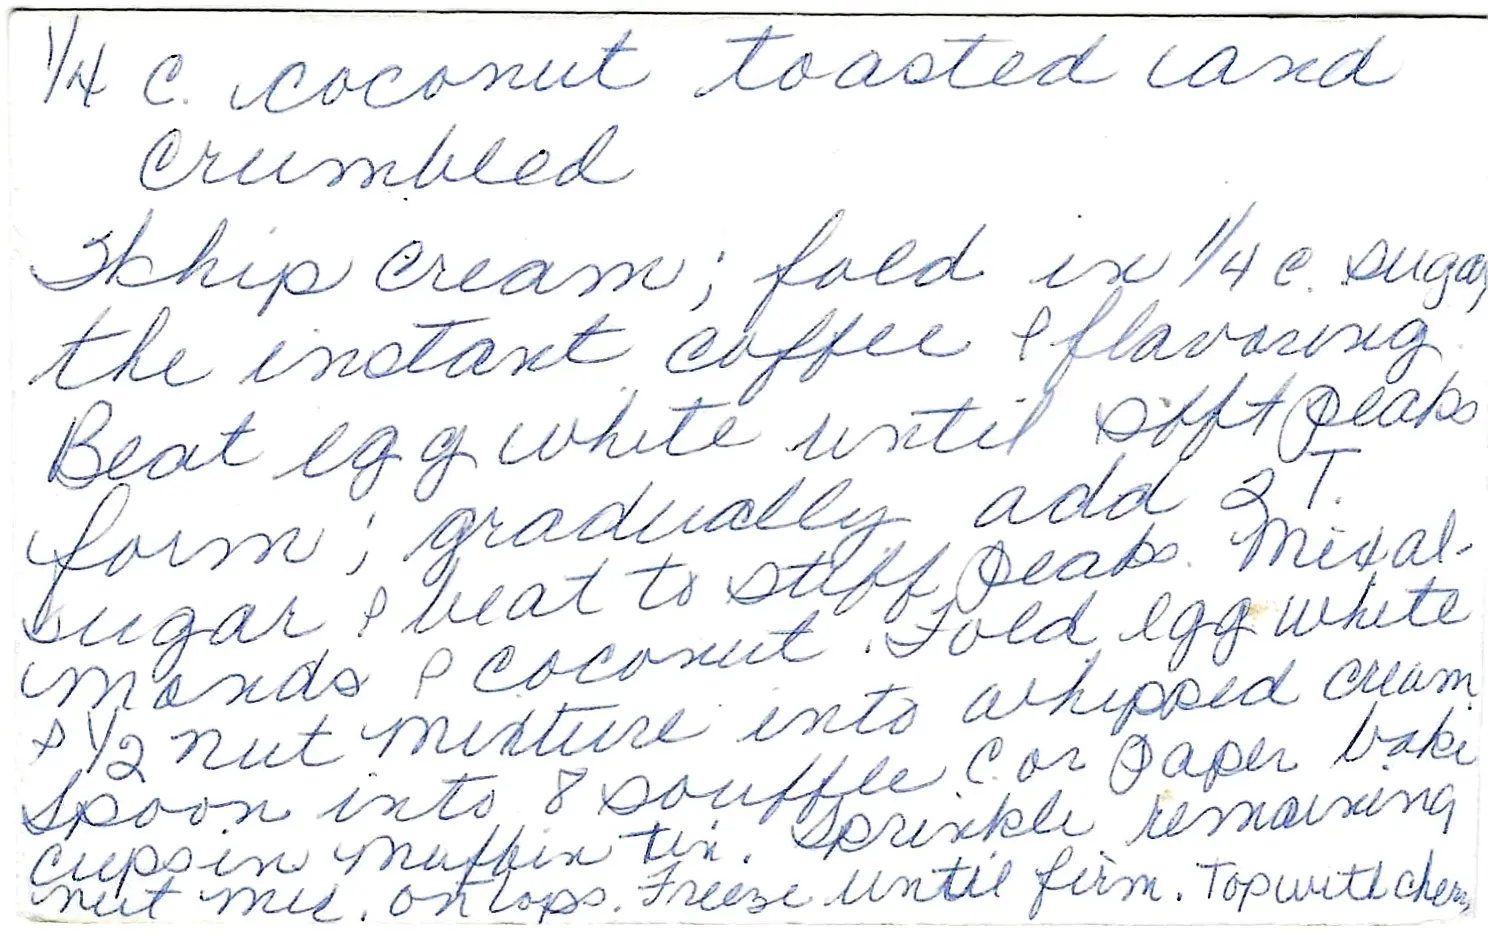 1/4 c. coconut toasted and
crumbled
Whip cream; fold in 1/4 c. sugar,
the instant coffee & flavoring.
Beat egg white until soft peaks
form; gradually add 2 T.
sugar & beat to stiff peaks. Mix al-
monds & coconut. Fold egg white
& 1/2 nut mixture into whipped cream
Spoon into 8 souffle c. or paper bake
cups in muffin tin. Sprinkle remaining
nut mix. on tops. Freeze until firm. Top with cherry